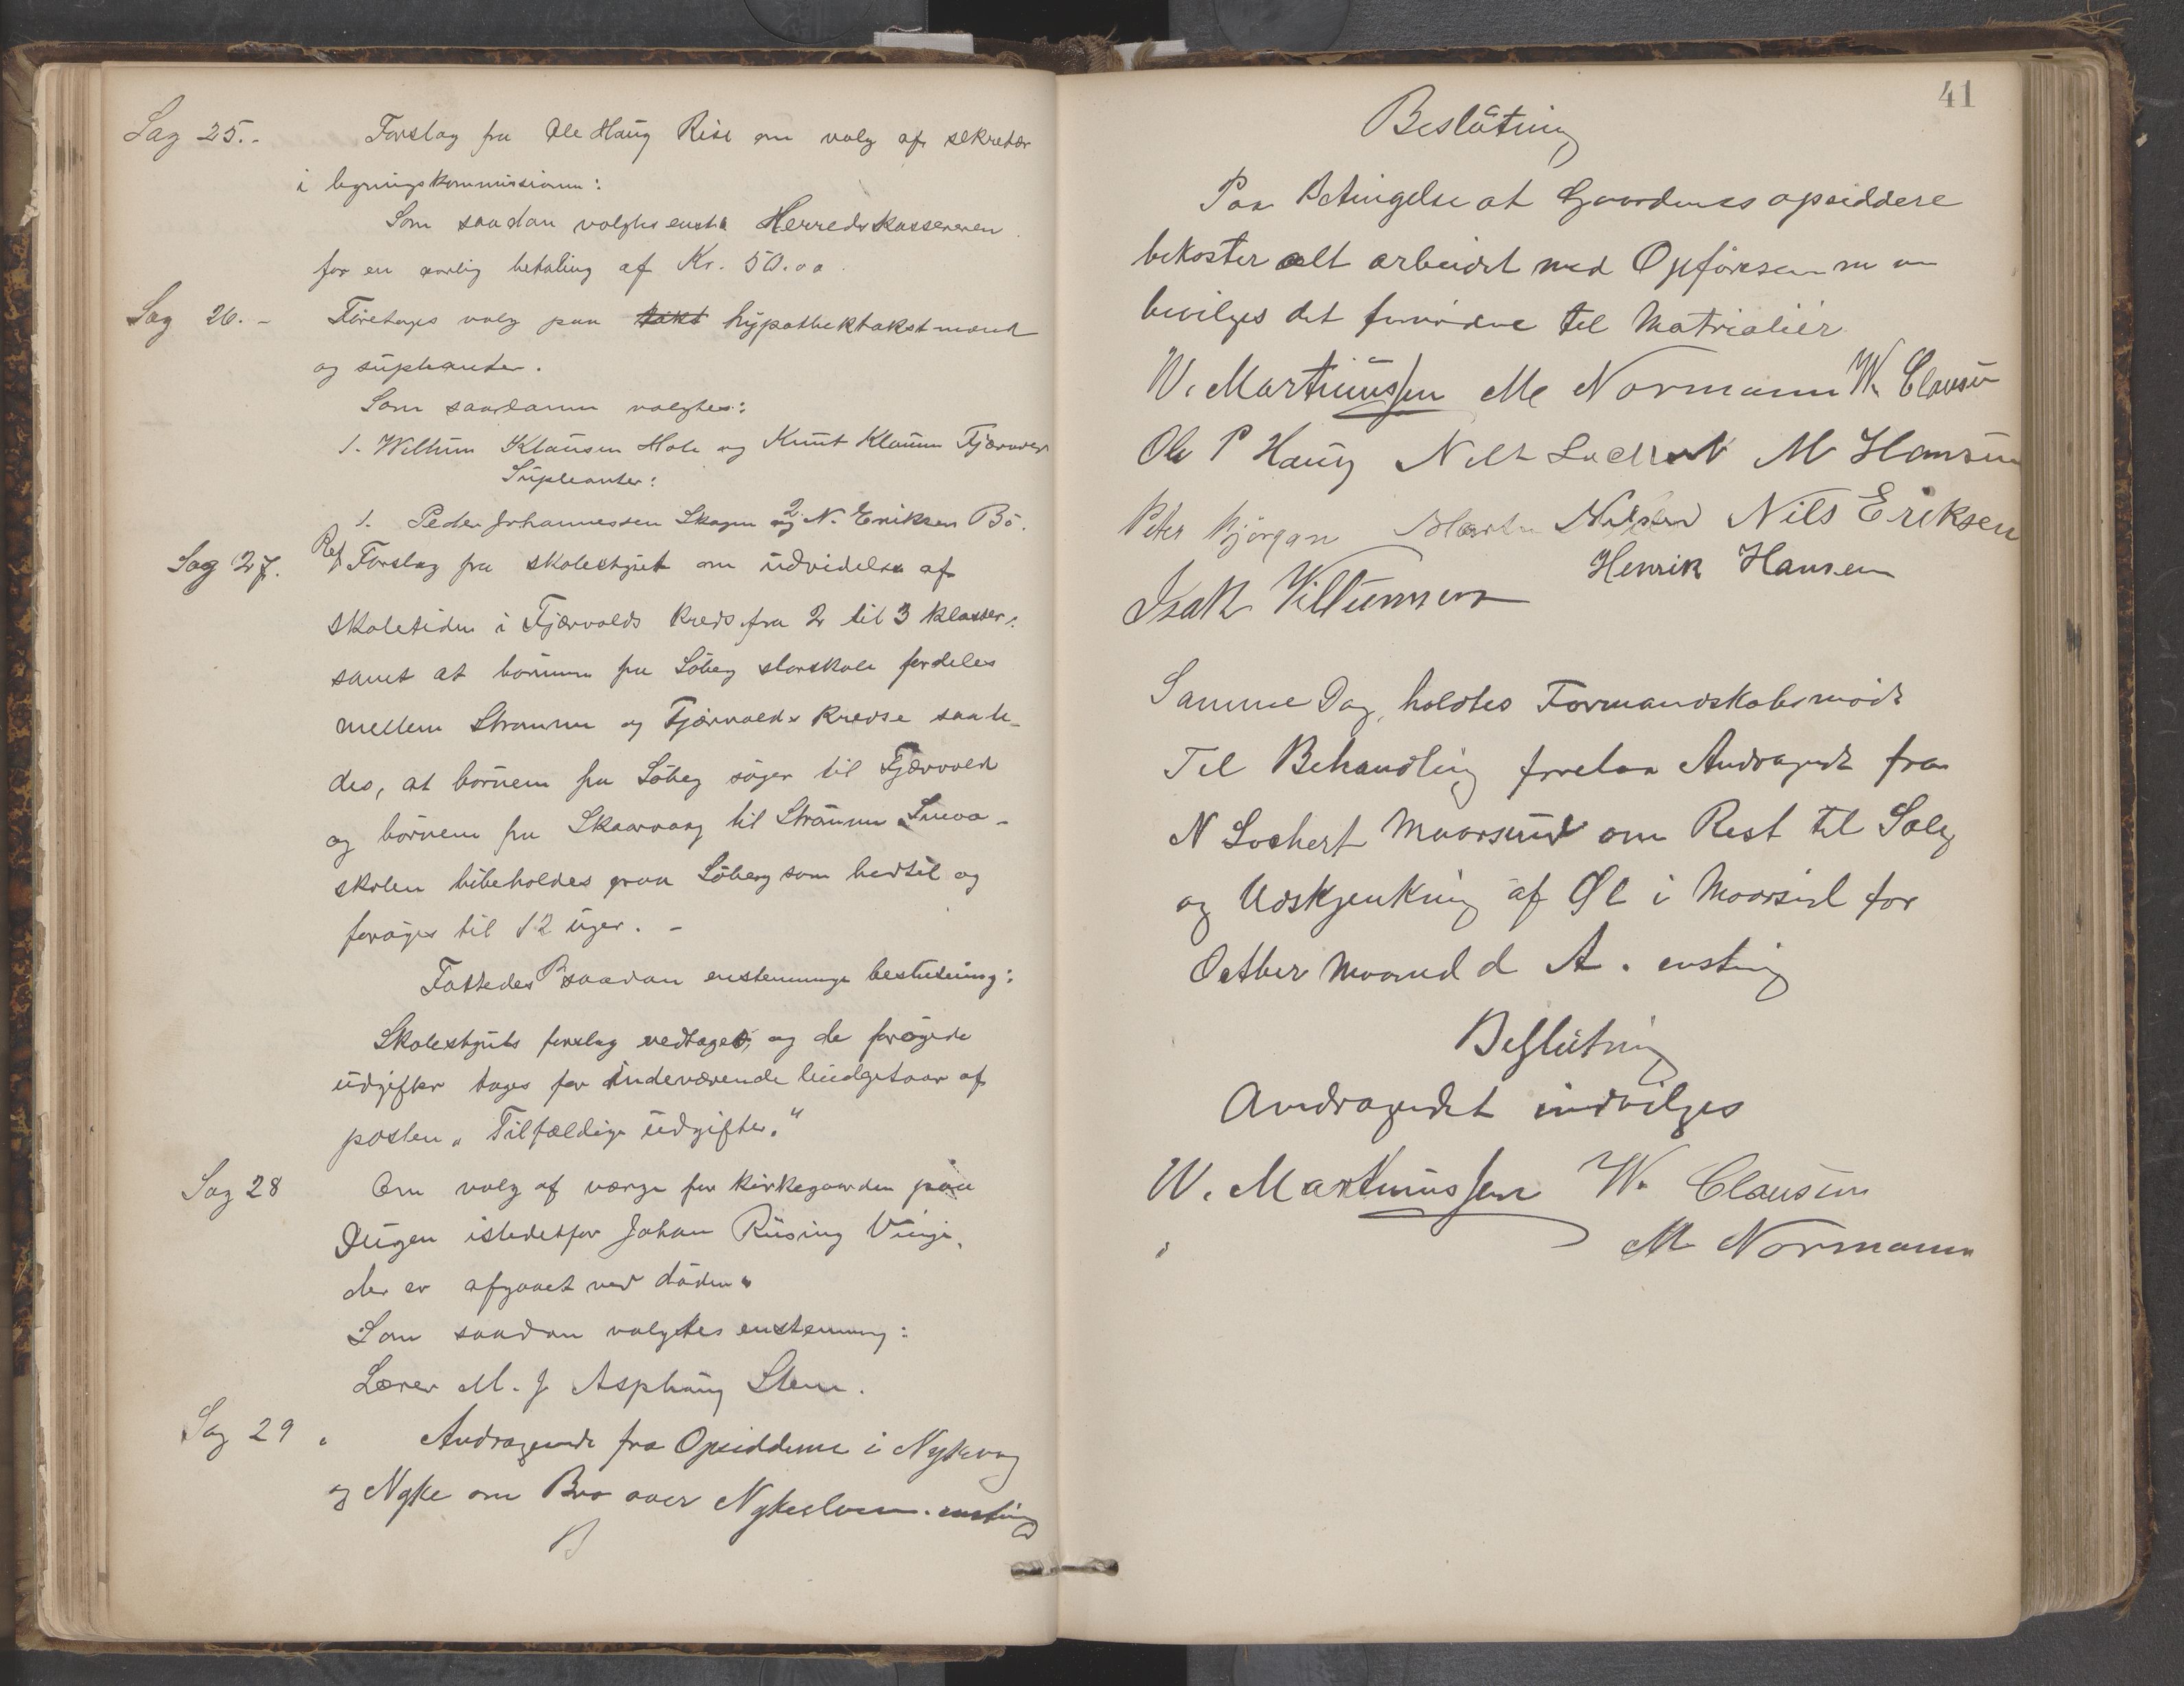 Sag 25.- Forslag fra Ole Haug Rise om valg af sekretær
i ligningskommissionen:
Som saadan valgtes enst. Herredskassereren
for en aarlig betaling af Kr. 50.00
Sag 26.- Foretoges valg paa takst hypothektakstmænd
og supleanter.
Som saadanne valgtes:
1. Klausen Hole og Knut Klausen Fjærvoll
Supleanter:
1. Peder Johannessen Skagen og 2 N. Eriksen Bö.
Sag 27. Ref Forslag fra skolestyret om udvidelse af
skoletiden i Fjærvolds kreds fra 2 til 3 klasser,
samt at börnene fra Söberg storskole fordeles
mellem Straumen og Fjærvolds kredse saale-
des, at börnene fra Söberg söger til Fjærvold
og börnene fra Skaarvaag til Straumen. Smaa-
skolen bibeholdes paa Söberg som hertil og
foröges til 12 uger. -
Fattedes saadan enstemmige beslutning:
Skolestyrets forslag vedtages, og de forögede
udgifter tages for indeværende budgetaar af
posten „Tilfældige udgifter."
Sag 28 Om valg af værge for kirkegaarden paa
Dugen istedetfor Johan Rüsing Vinje,
der er afgaaet ved döden.
Som saadan valgtes enstemmig:
Lærer M. J. Asphaug Stene.
Sag 29. Andragende fra Opsidderne i Nykvaag
og Nyke om Bro over. enstemmig
41
Beslutning
Paa Betingelse at Gaardenes opsiddere
bekoster alt arbeidet med Opförselen
bevilges det fornödne til Matrialier
W. Martinussen M Normann W. Clausen
Ole P Haug Nils Lochert M Hansen
Peter Björgan Martin Nilsen Nils Eriksen
Henrik Hansen
Isak Villumsen
Samme Dag holdtes Formandskabsmöde
Til Behandling forelaa Andragende fra
N Lochert Maarsund om Rest til Salg
og Udskjenkning af Øl i Maarsund for
Octber Maaned d A. enstemig
Beslutning
Andragendet indvilges
W. Martinussen W. Clausen
M Normann